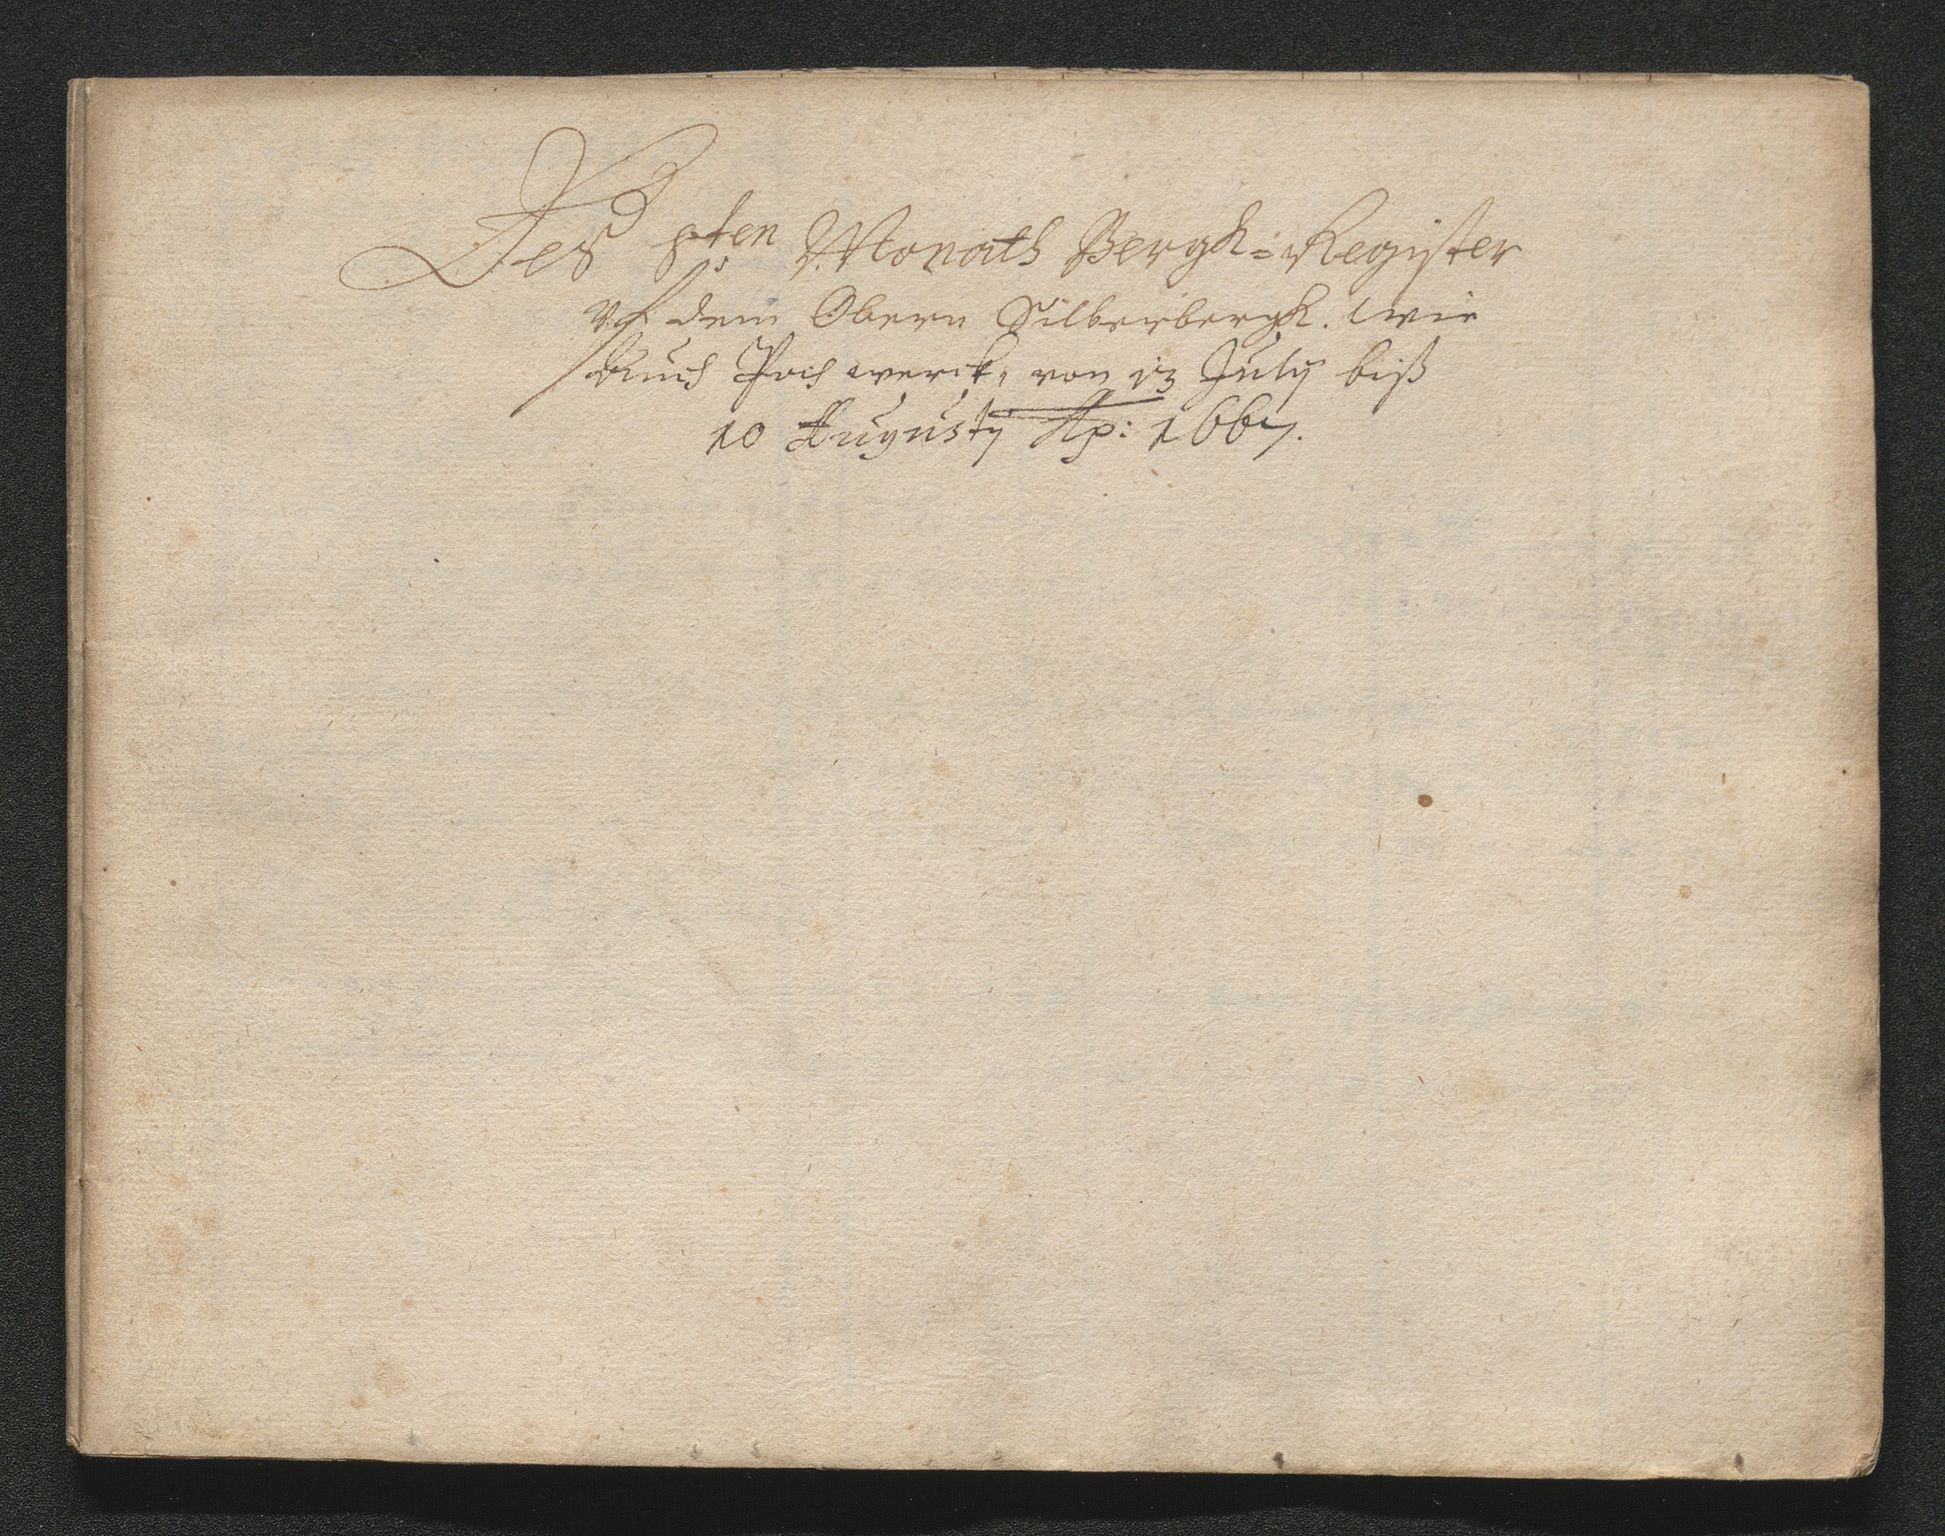 Des 8ten Monaths Bergk=Register
Vf dem Obern Silberbergk. wie
Auch Poch werck, von 13 July biß
10 Augusty Ao: 1667.